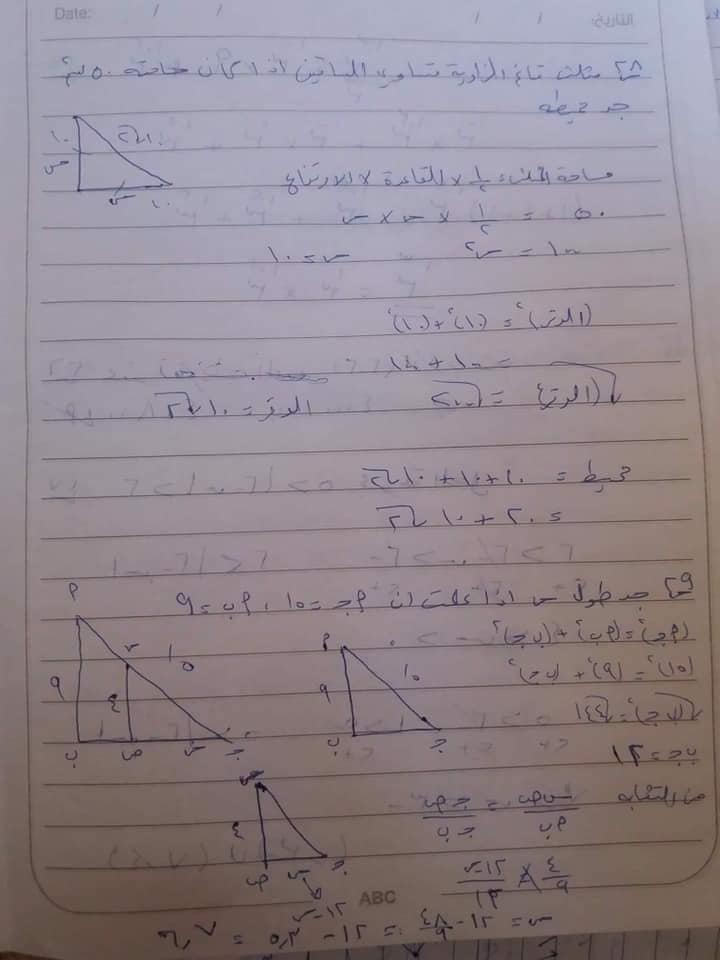 Date: / / التاريخ: / /
س٨ مثلث قائم الزاوية متساوي الساقين اذا كان مساحته ٥٠ سم٢
جد محيطه
١٠ س ١٠√٢ س ١٠
مساحة المثلث = ١/٢ × القاعدة × الارتفاع
٥٠ = ١/٢ × س × س
١٠٠ = س٢ س = ١٠
(الوتر)٢ = (١٠)٢ + (١٠)٢
= ١٠٠ + ١٠٠
√(الوتر)٢ = √٢٠٠ الوتر = ١٠√٢
محيط = ١٠ + ١٠ + ١٠√٢
= ٢٠ + ١٠√٢
س٩ جد طول س اذا علمت ان أجـ = ١٥ ، أب = ٩
(أجـ)٢ = (أب)٢ + (بجـ)٢
(١٥)٢ = (٩)٢ + (بجـ)٢
√(بجـ)٢ = √١٤٤
بجـ = ١٢
أ ٩ س ١٥ ٤ ب ص س جـ
أ ٩ ١٥ ب جـ
من التشابه سص/أب = جـص/جـب
س ٤ ص س جـ
٤/٩ = ١٢-س/١٢
١٢-س
ABC